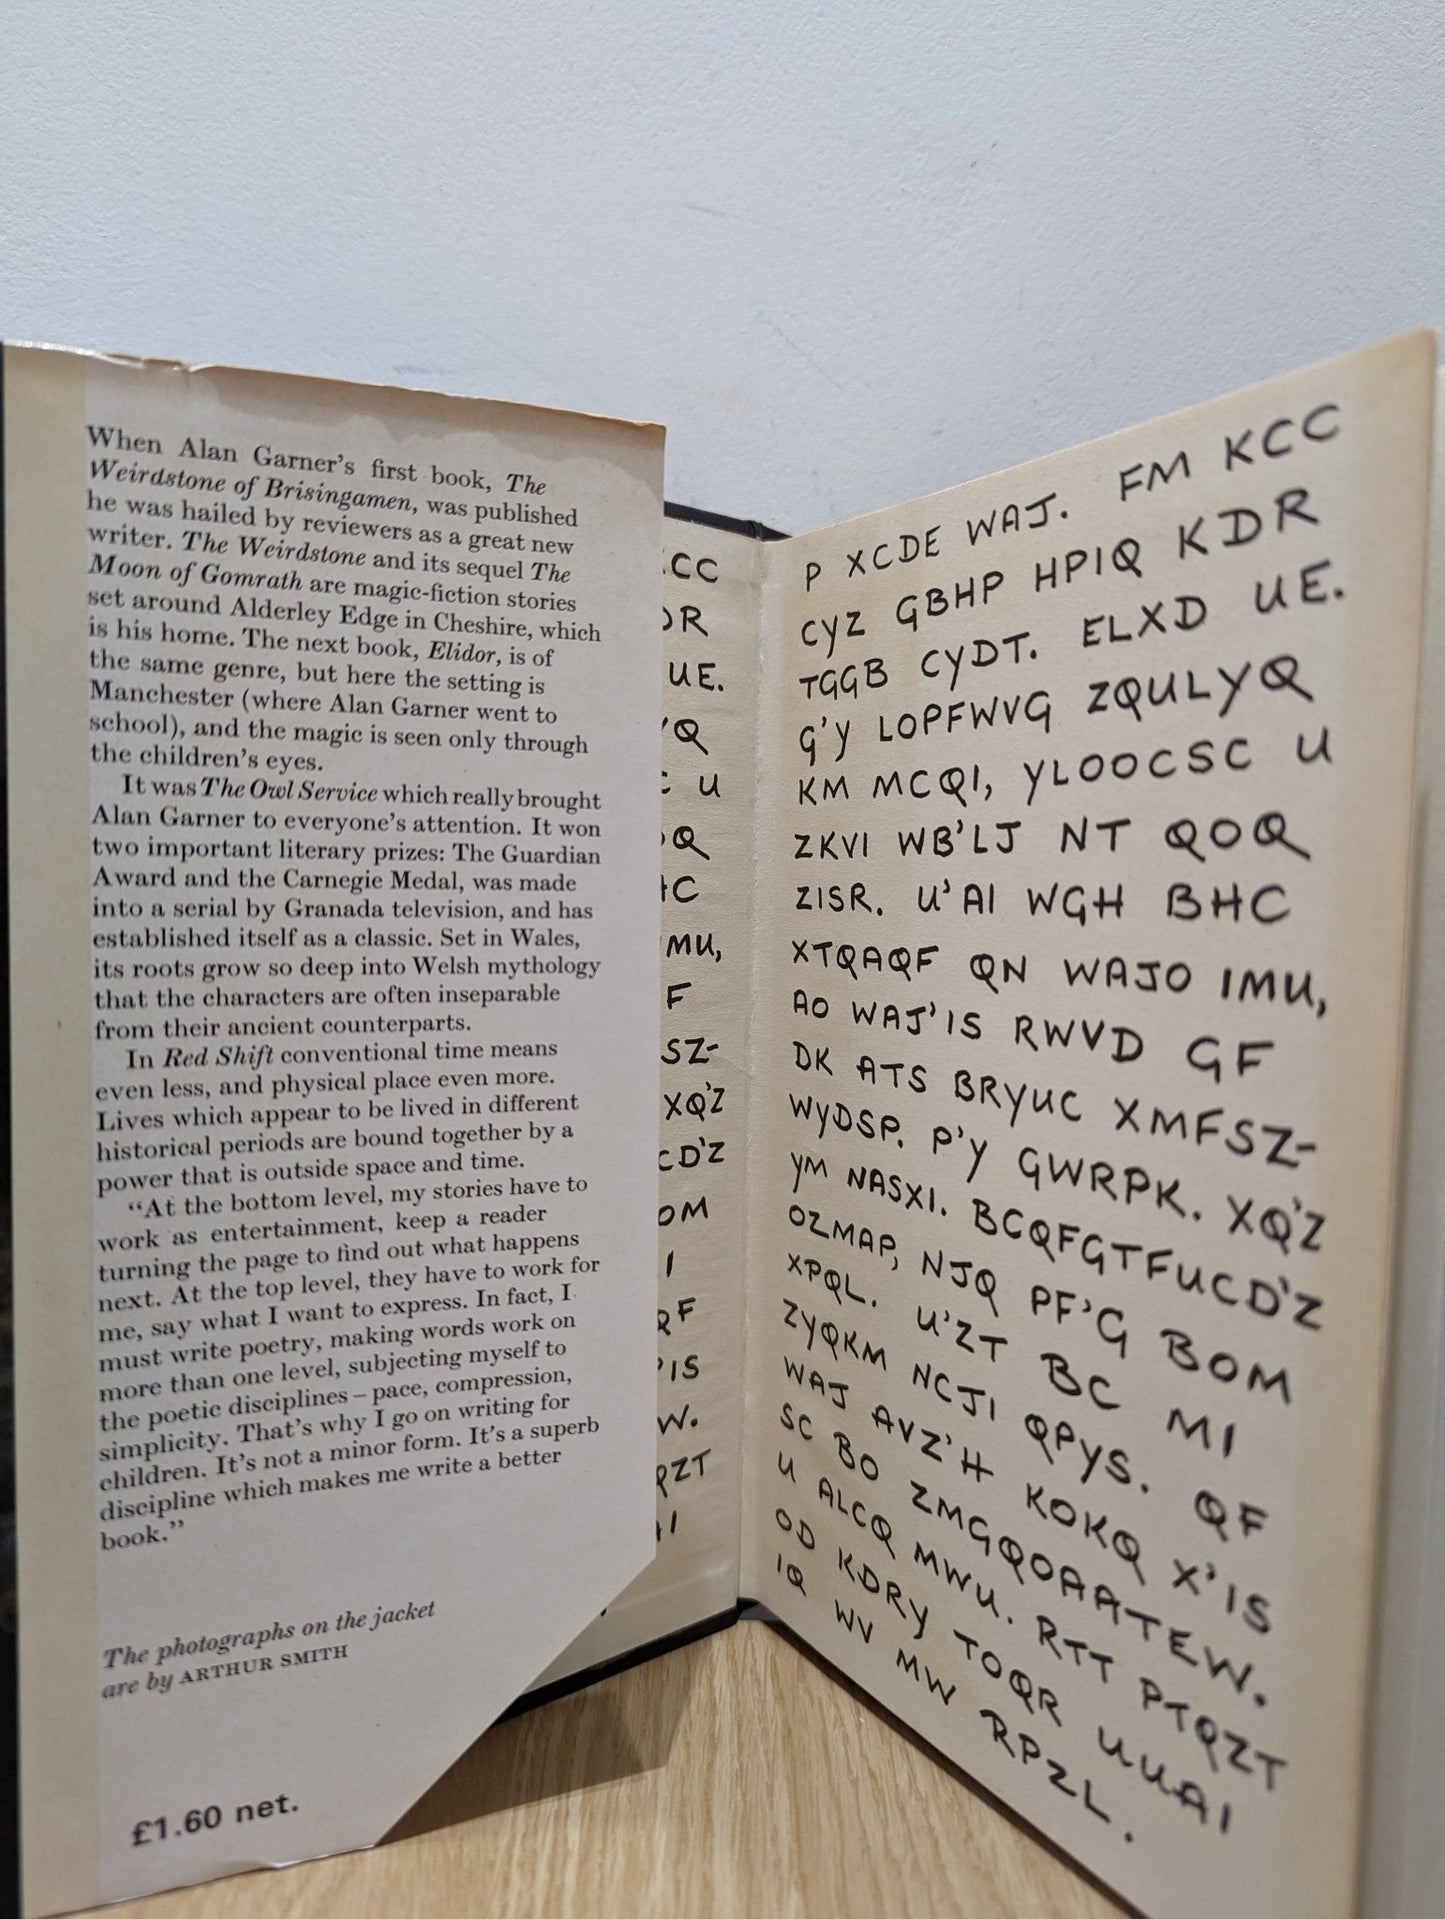 When Alan Garner's first book, The
Weirdstone of Brisingamen, was published
he was hailed by reviewers as a great new
writer. The Weirdstone and its sequel The
Moon of Gomrath are magic-fiction stories
set around Alderley Edge in Cheshire, which
is his home. The next book, Elidor, is of
the same genre, but here the setting is
Manchester (where Alan Garner went to
school), and the magic is seen only through
the children's eyes.
It was The Owl Service which really brought
Alan Garner to everyone's attention. It won
two important literary prizes: The Guardian
Award and the Carnegie Medal, was made
into a serial by Granada television, and has
established itself as a classic. Set in Wales,
its roots grow so deep into Welsh mythology
that the characters are often inseparable
from their ancient counterparts.
In Red Shift conventional time means
even less, and physical place even more.
Lives which appear to be lived in different
historical periods are bound together by a
power that is outside space and time.
“At the bottom level, my stories have to
work as entertainment, keep a reader
turning the page to find out what happens
next. At the top level, they have to work for
me, say what I want to express. In fact, I
must write poetry, making words work on
more than one level, subjecting myself to
the poetic disciplines – pace, compression,
simplicity. That's why I go on writing for
children. It's not a minor form. It's a superb
discipline which makes me write a better
book.”
The photographs on the jacket
are by ARTHUR SMITH
£1.60 net.
CC
R
UE.
Q
U
Q
C
MU,
F
SZ-
XQ'Z
CD'Z
OM
I
F
'IS
W.
ZT
I
P XCDE WAJ. FM KCC
CYZ GBHP HPIQ KDR
TGGB CYDT. ELXD UE.
G'Y LOPFWVG ZQULYQ
KM MCQI, YLOOCSC U
ZKVI WB'LJ NT QOQ
ZISR. U'AI WGH BHC
XTQAQF QN WAJO IMU,
AO WAJ'IS RWVD GF
DK ATS BRYUC XMFSZ-
WYDSP. P'Y GWRPK. XQ'Z
YM NASXI. BCQFGTFUCD'Z
OZMAP, NJQ PF'G BOM
XPQL. U'ZT BC MI
ZYQKM NCJI QPYS. QF
WAJ AVZ'H KOKQ X'IS
SC BO ZMGQOAATEW.
U ALCQ MWU. RTT PTQZT
OD KDRY TOQR UUAI
IQ WV MW RPZL.